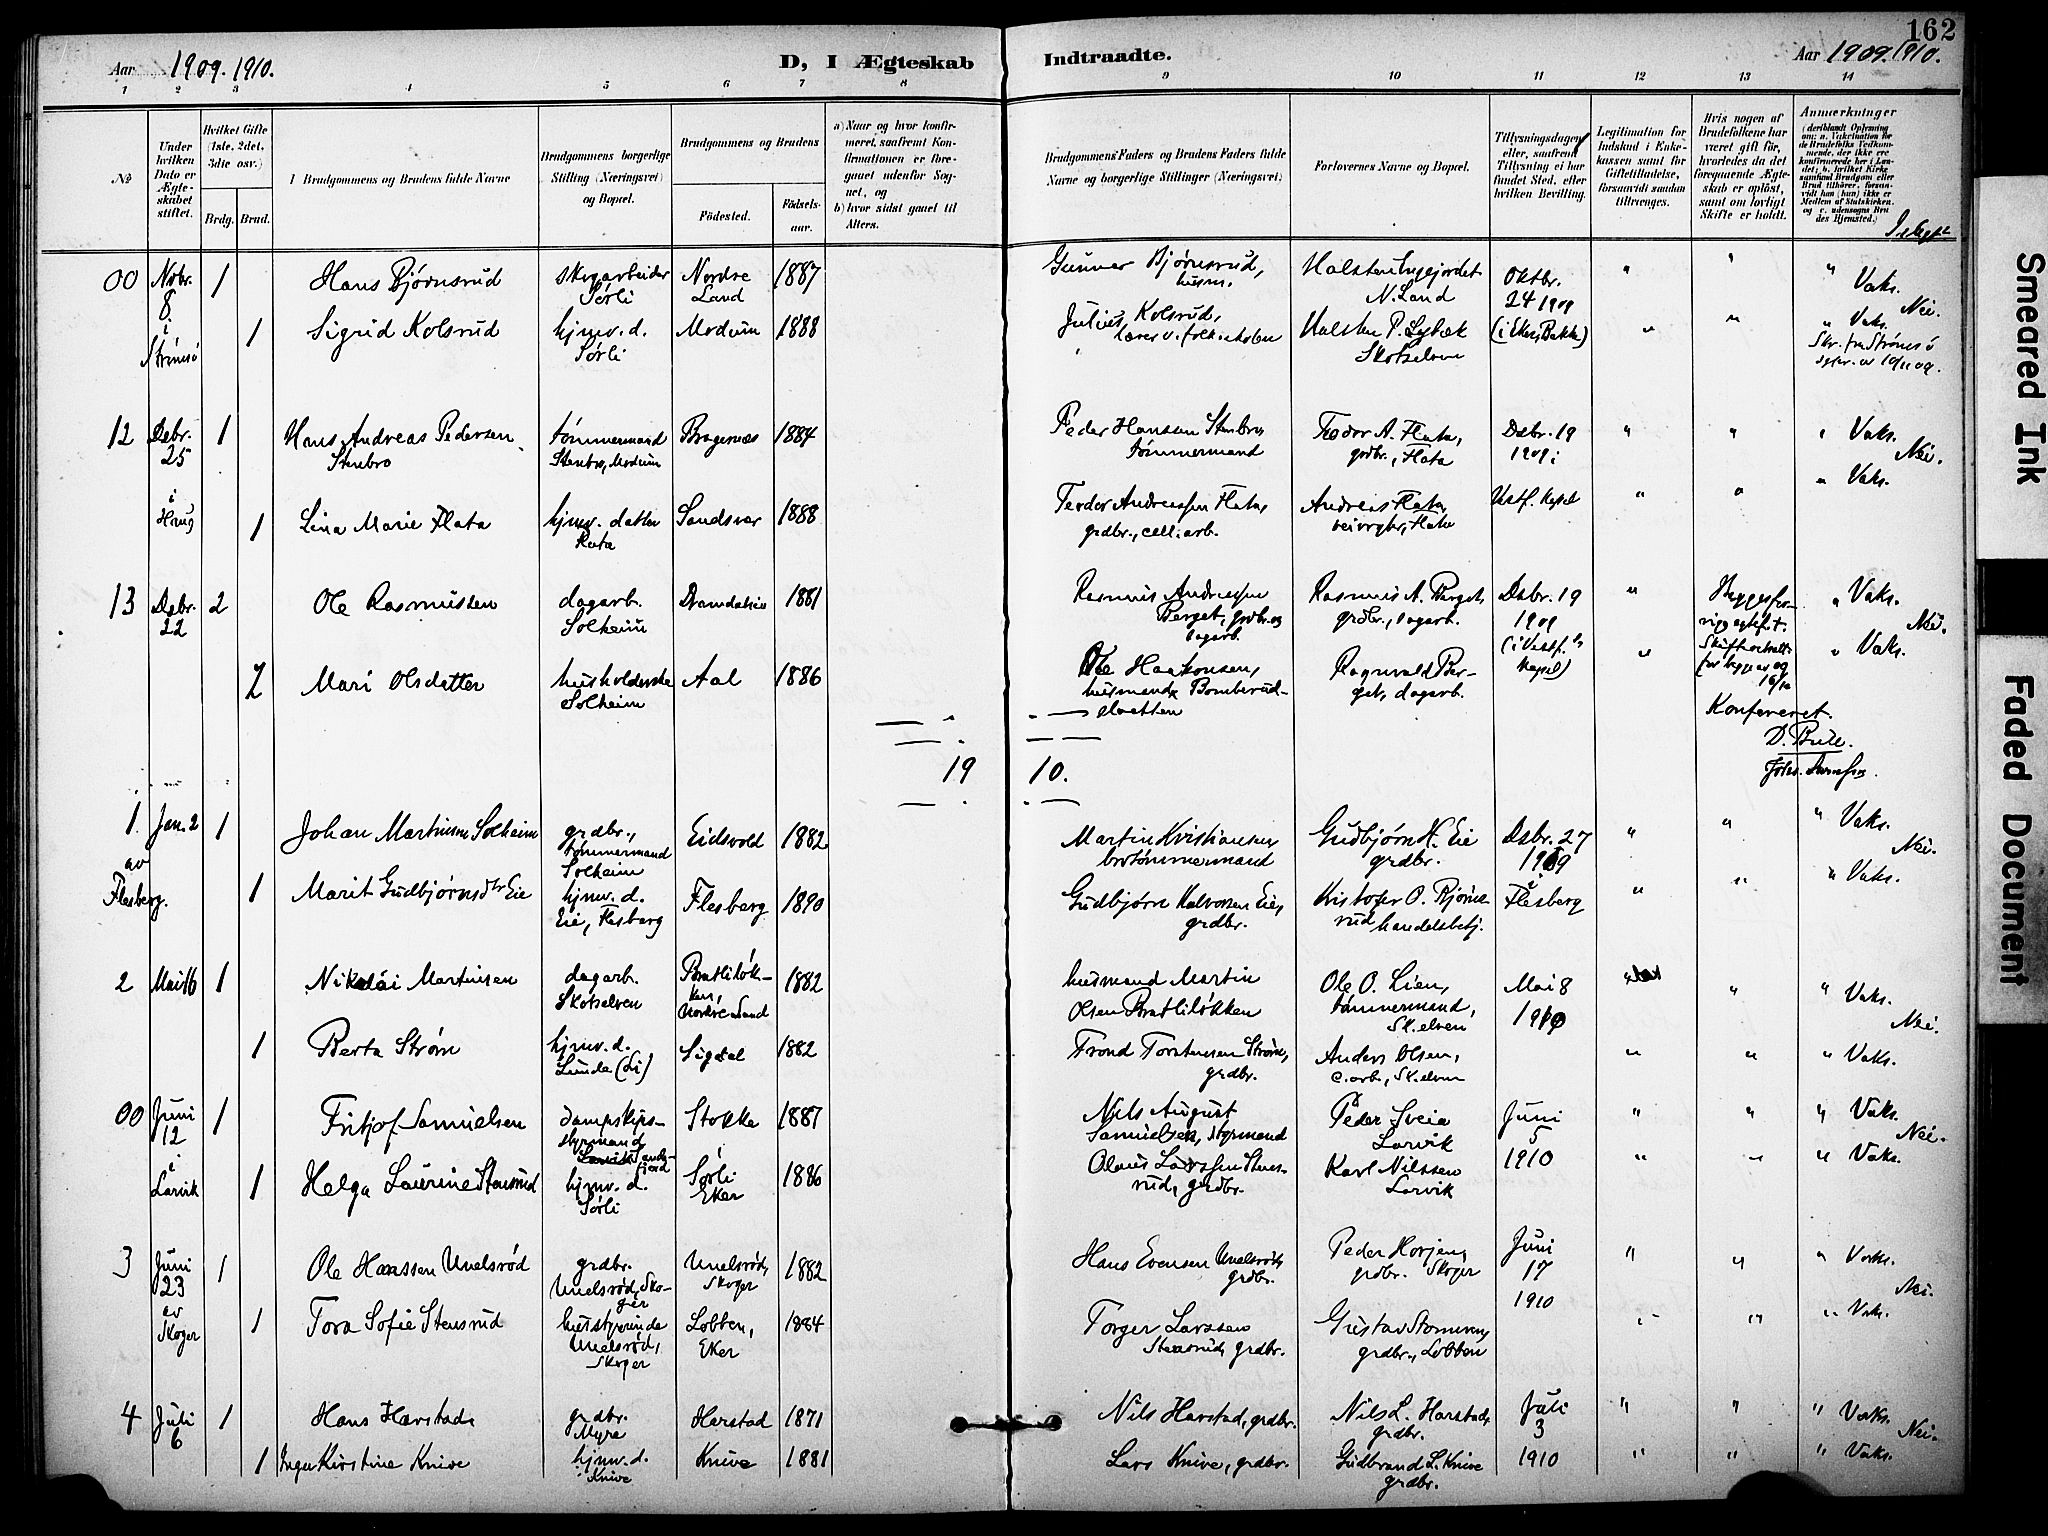 162
Aar 1909. 1910.
D, I Ægteskab Indtraadte.
Aar 1909. 1910.
1 2 3 4 5 6 7 8 9 10 11 12 13 14
No
Under hvilken Dato er Ægteskabet stiftet.
Hvilket Gifte (1ste, 2det, 3die osv.)
Brdg. Brud.
Brudgommens og Brudens fulde Navne
Brudgommens borgerlige Stilling (Næringsvei) og Bopæl.
Brudgommens og Brudens
Födested.
Födsels-aar.
a) Naar og hvor konfirmeret, saafremt Konfirmationen er foregaaet udenfor Sognet, og
b) hvor sidst gaaet til Alters.
Brudgommens Faders og Brudens Faders fulde Navne og borgerlige Stillinger (Næringsvei)
Forlovernes Navne og Bopæl.
Tillysningsdagen eller, saafremt Tillysning ei har fundet Sted, efter hvilken Bevilling.
Legitimation for Indskud i Enkekassen samt for Giftetilladelse, forsaavidt saadan tiltrænges.
Hvis nogen af Brudefolkene har været gift før, hvorledes da det foregaaende Ægteskab er opløst, samt om lovligt Skifte er holdt.
Anmærkninger
00 Nvbr. 8. i Strömsö 1 Hans Bjørnsrud skogarbeider Sørli Nordre Land 1887 Gunnar Bjørnsrud, husm. Halsten Engejordet N. Land Oktbr. 24 1909 " " " Vaks. Nei.
1 Sigrid Kolsrud hjmv. d. Sørli Modum 1888 Julius Kolsrud, lærer v. folkeskolen Halsten P. Lybæk Skotselven (i Eker, Bakke) " " " Vaks.
12 Dsbr. 25 i Haug 1 Hans Andreas Pedersen Stenbro tömmermand Stenbro, Modum Bragernæs 1884 Peder Hansen Stenbro tömmermand Teodor A. Flata, grdbr., Flata Dsbr. 19 1909 i " " " Vaks. Nei.
1 Lina Marie Flata hjmv. datter Flata Sandsvær 1888 Teodor Andreassen Flata, grdbr., cell. arb. Andreas Flata, veivogter, Flata Vestf. Kapel " " " Vaks.
13 Dsbr. 22 2 Ole Rasmussen dagarb. Solheim 1881 Rasmus Andreassen Berget, grdbr. og dagarb. Rasmus A. Berget, grdbr., dagarb. Dsbr. 19 1909 " " Vaks. Nei.
2 Mari Olsdatter husholderske Solheim Aal 1886 Ole Haakonsen, husmand Ragnvald Berget, dagarb. (i Vestf. Kapel) " " Vaks.
Konfereret.
19 10.
1. Jan. 2 av Flesberg. 1 Johan Martinsen Solheim grdbr., tömmermand Solheim Eidsvold 1882 Martin Kristiansen, tömmermand Gudbjørn H. Eie grdbr. Dsbr. 27 1909 " " " Vaks. Nei.
1 Marit Gudbjørnsdtr Eie hjmv. d. Eie, Flesberg Flesberg 1890 Gudbjørn Halvorsen Eie, grdbr. Kristofer O. Bjørnerud handelsbetj. Flesberg " " " Vaks.
2 Mai 16 1 Nikolai Martinsen dagarb. Skotselven Brattliløkken, Nordre Land 1882 husmand Martin Olsen Brattliløkken Ole O. Lien, tömmermand, Sk.elven Mai 8 1910 " " Vaks. Nei.
1 Berta Strøm hjmv. d. Lunde (Li) Sigdal 1882 Trond Torstensen Strøm, grdbr. Anders Olsen, c.arb., Sk.elven " " " Vaks.
00 Juni 12 i Larvik 1 Fritjof Samuelsen dampskips-styrmand Sandefjord Stokke 1887 Nils August Samuelsen, styrmand Peder Sveia Larvik Juni 5 1910 " " " Vaks. Nei.
1 Helga Laurine Stensrud hjmv. d. Sørli Sørli Eker 1886 Olaus Larssen Stensrud, grdbr. Karl Nilssen Larvik " " " Vaks.
3 Juni 23 av Skoger 1 Ole Hanssen Unelsrød grdbr. Unelsrød, Skoger Unelsrød, Skoger 1882 Hans Evensen Unelsrød, grdbr. Peder Horjen, grdbr. Skoger Juni 17 1910 " " " Vaks. Nei.
1 Tora Sofie Stensrud husstyrende Unelsrød, Skoger Lobben, Eker 1884 Torger Larssen Stensrud, grdbr. Gustav grdbr., Lobben " " " Vaks.
4 Juli 6 1 Hans Harstad grdbr. Myra Harstad 1871 Nils Harstad, grdbr. Nils L. Harstad, grdbr. Juli 3 1910 " " " Vaks. Nei.
1 Inger Kirstine Knive hjmv. d. Knive Knive 1881 Lars Knive, grdbr. Gudbrand L. Knive grdbr. " " " Vaks.
Smeared Ink
Faded Document